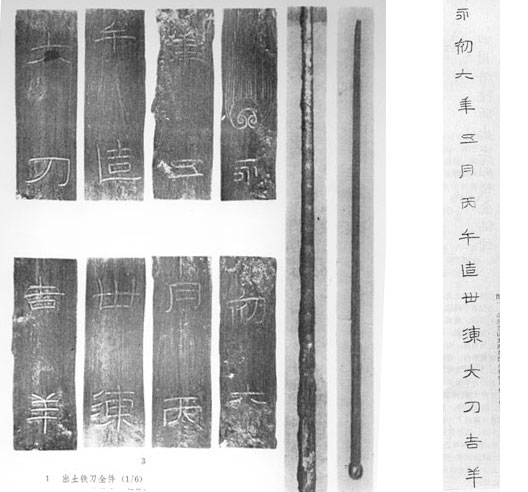 永
初六
年五
月丙
午造
卅湅
大刀
吉羊
3
1 出土铁刀全件 (1/6)
永初六年五月丙午造卅湅大刀吉羊